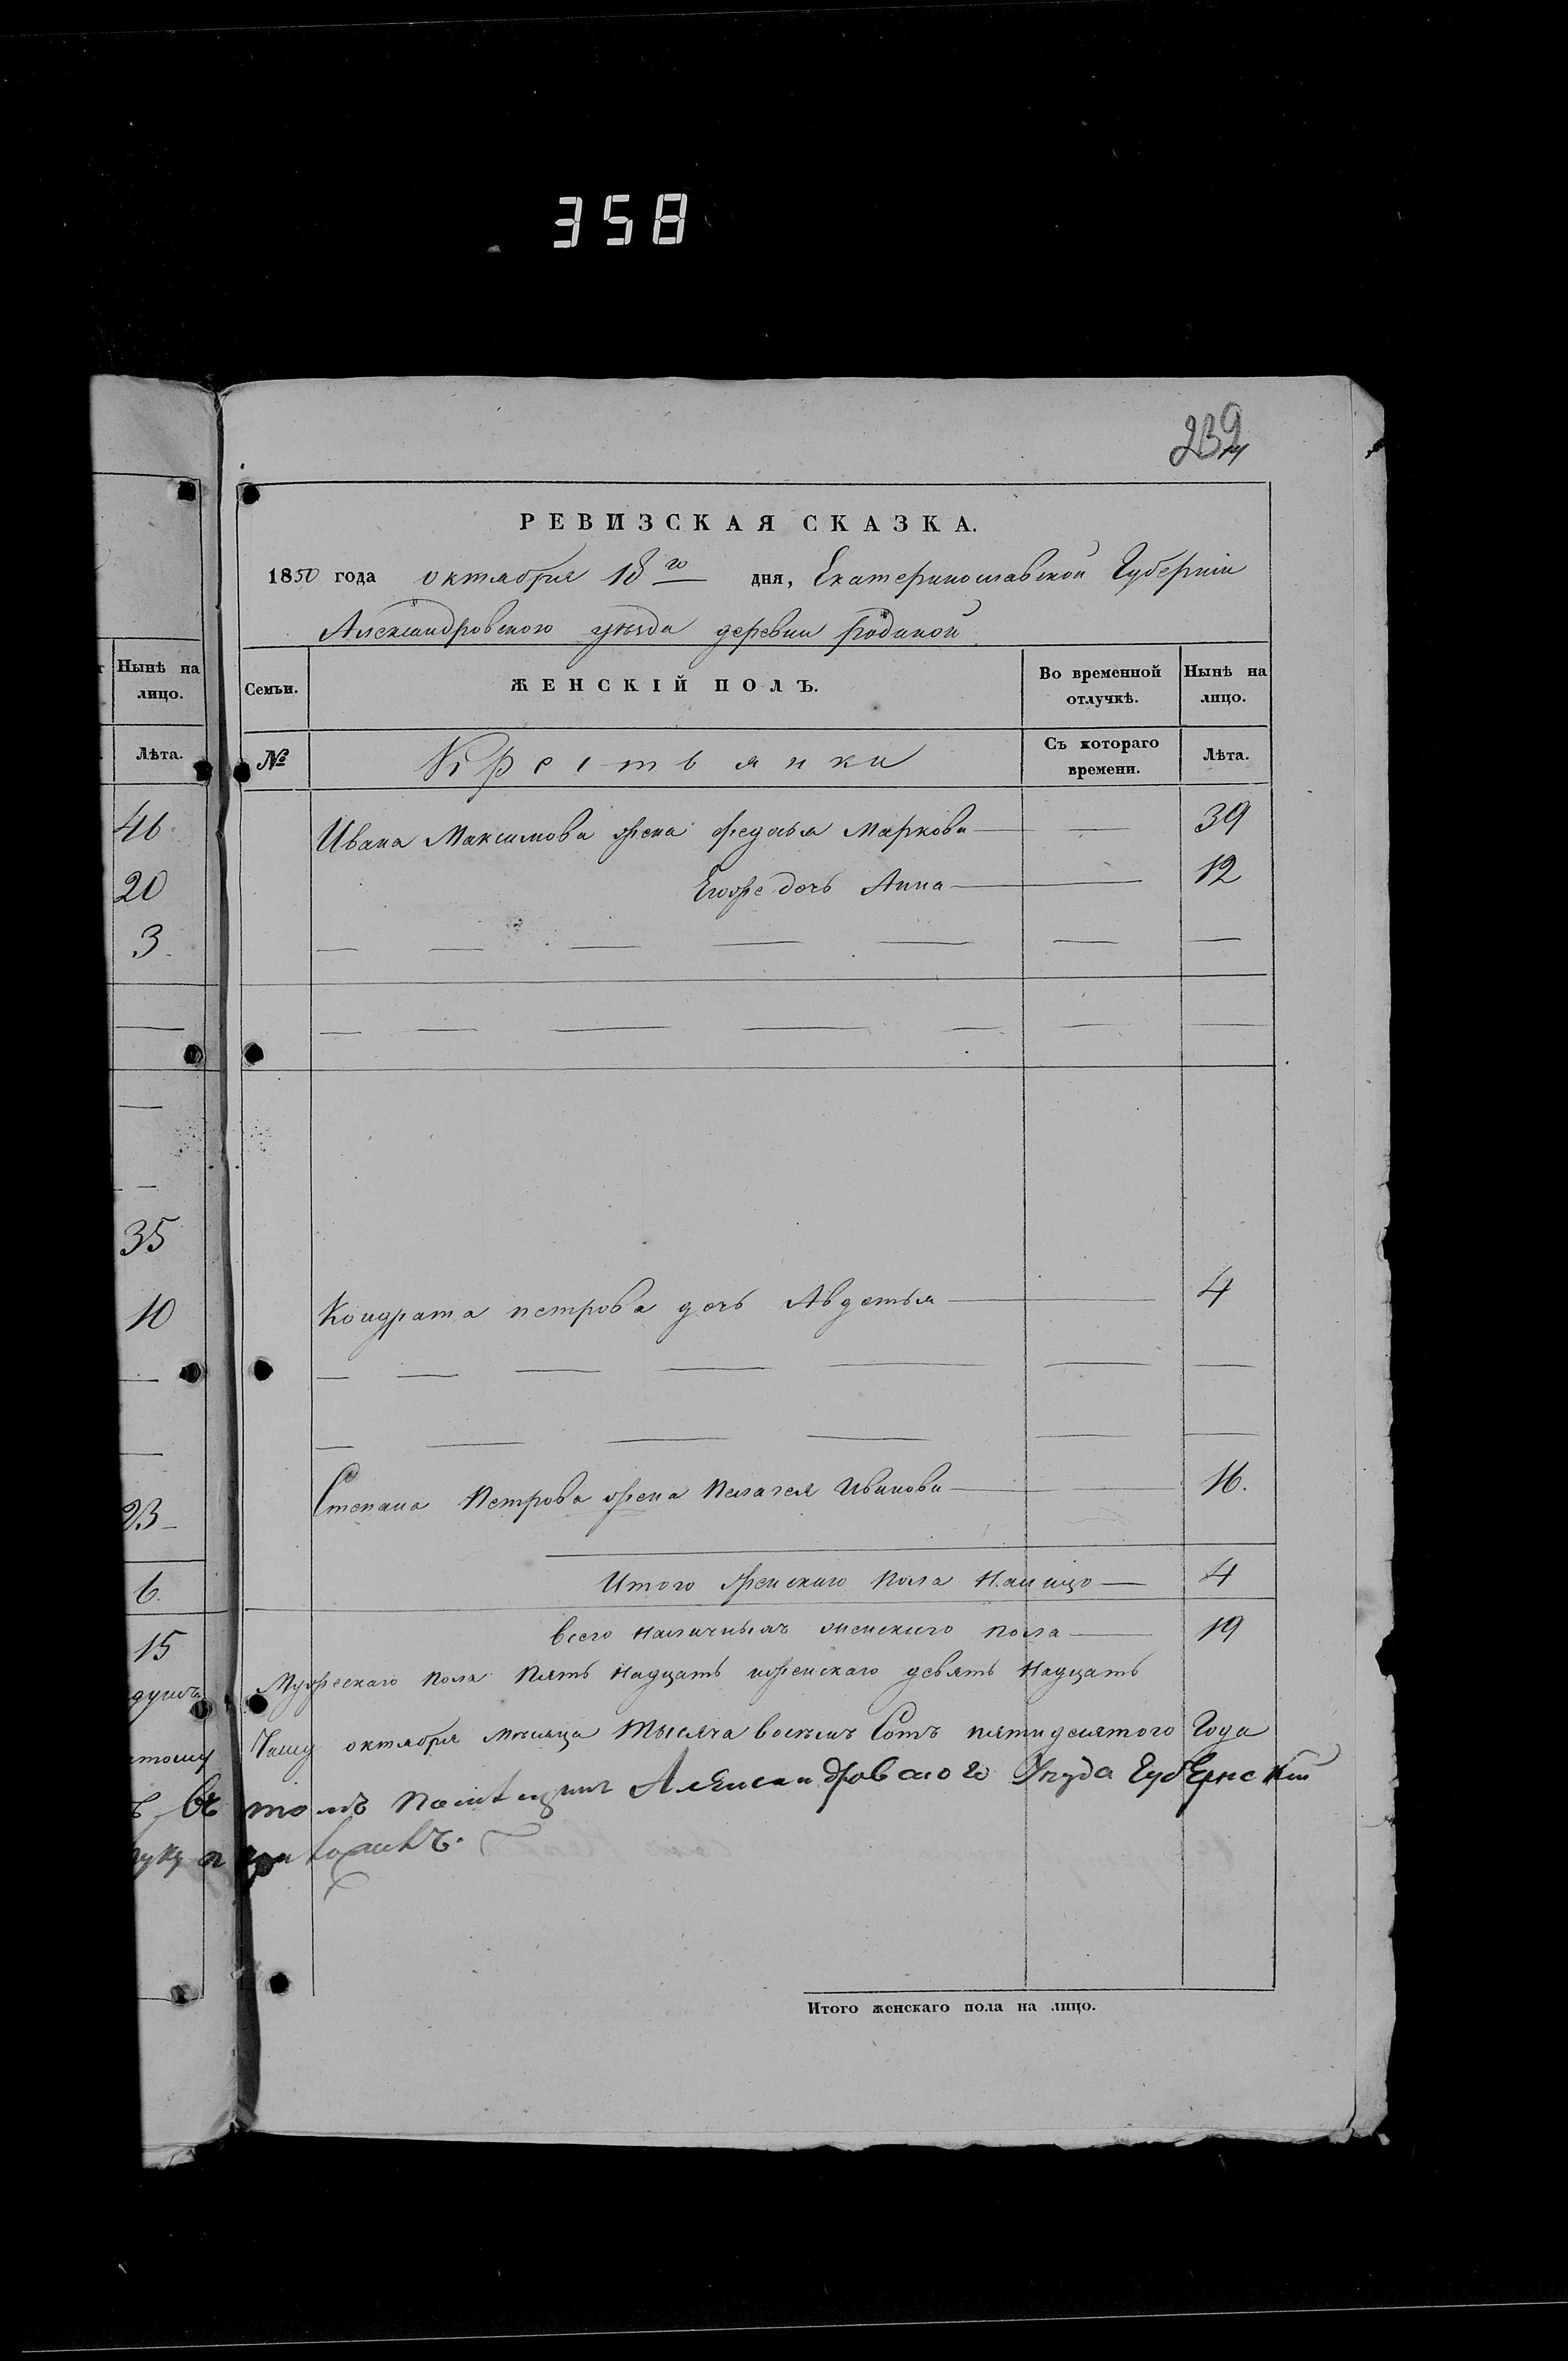 358
239
РЕВИЗСКАЯ СКАЗКА.
1850 года октября 18го дня, Екатеринославской Губернии
Александровского уѣзда деревни
Нынѣ на лицо.
Лѣта.
46
20
3
35
10
23
6
15
душъ
Семьи.
ЖЕНСКІЙ ПОЛЪ.
Во временной отлучкѣ.
Нынѣ на лицо.
№
Крестьянки
Съ котораго времени.
Лѣта.
Ивана Максимова жена Федосья Маркова 39
Егоже дочь Анна 12
Кондрата петрова дочь Авдотья 4
Степана Петрова жена Пелагея Иванова 16.
Итого женскаго пола налицо 4
Всего наличныхъ женскаго пола 19
Мужескаго пола пять надцать иженскаго девять надцать
октября мѣсяца тысяча восемъ Сотъ пятидесятого Года
въ томъ Александровского Уѣзда Губернскій
руку приложилъ.
Итого женскаго пола на лицо.